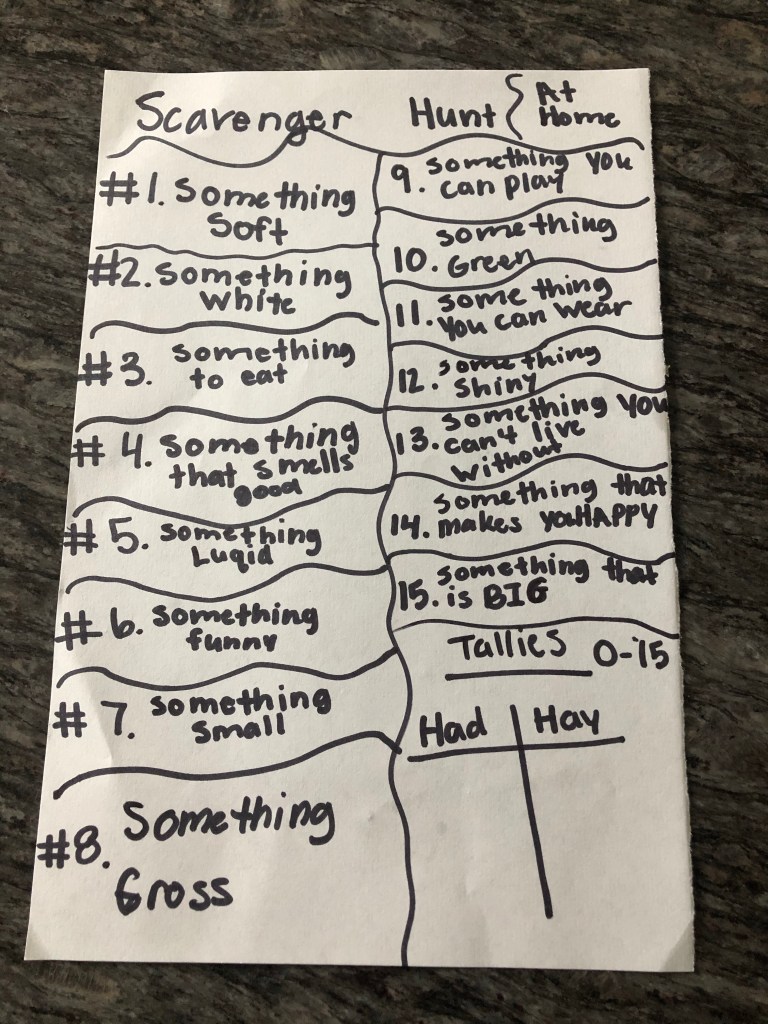 Scavenger Hunt { At
Home
#1. Something
Soft
#2. Something
White
#3. Something
to eat
#4. Something
that smells
good
#5. Something
Luqid
#6. Something
funny
#7. Something
Small
#8. Something
Gross
9. Something you
can play
10. Something
Green
11. Some thing
You can wear
12. Something
Shiny
13. Something You
can4 live
without
14. Something that
makes you HAPPY
15. Something that
is BIG
Tallies 0-15
Had Hay